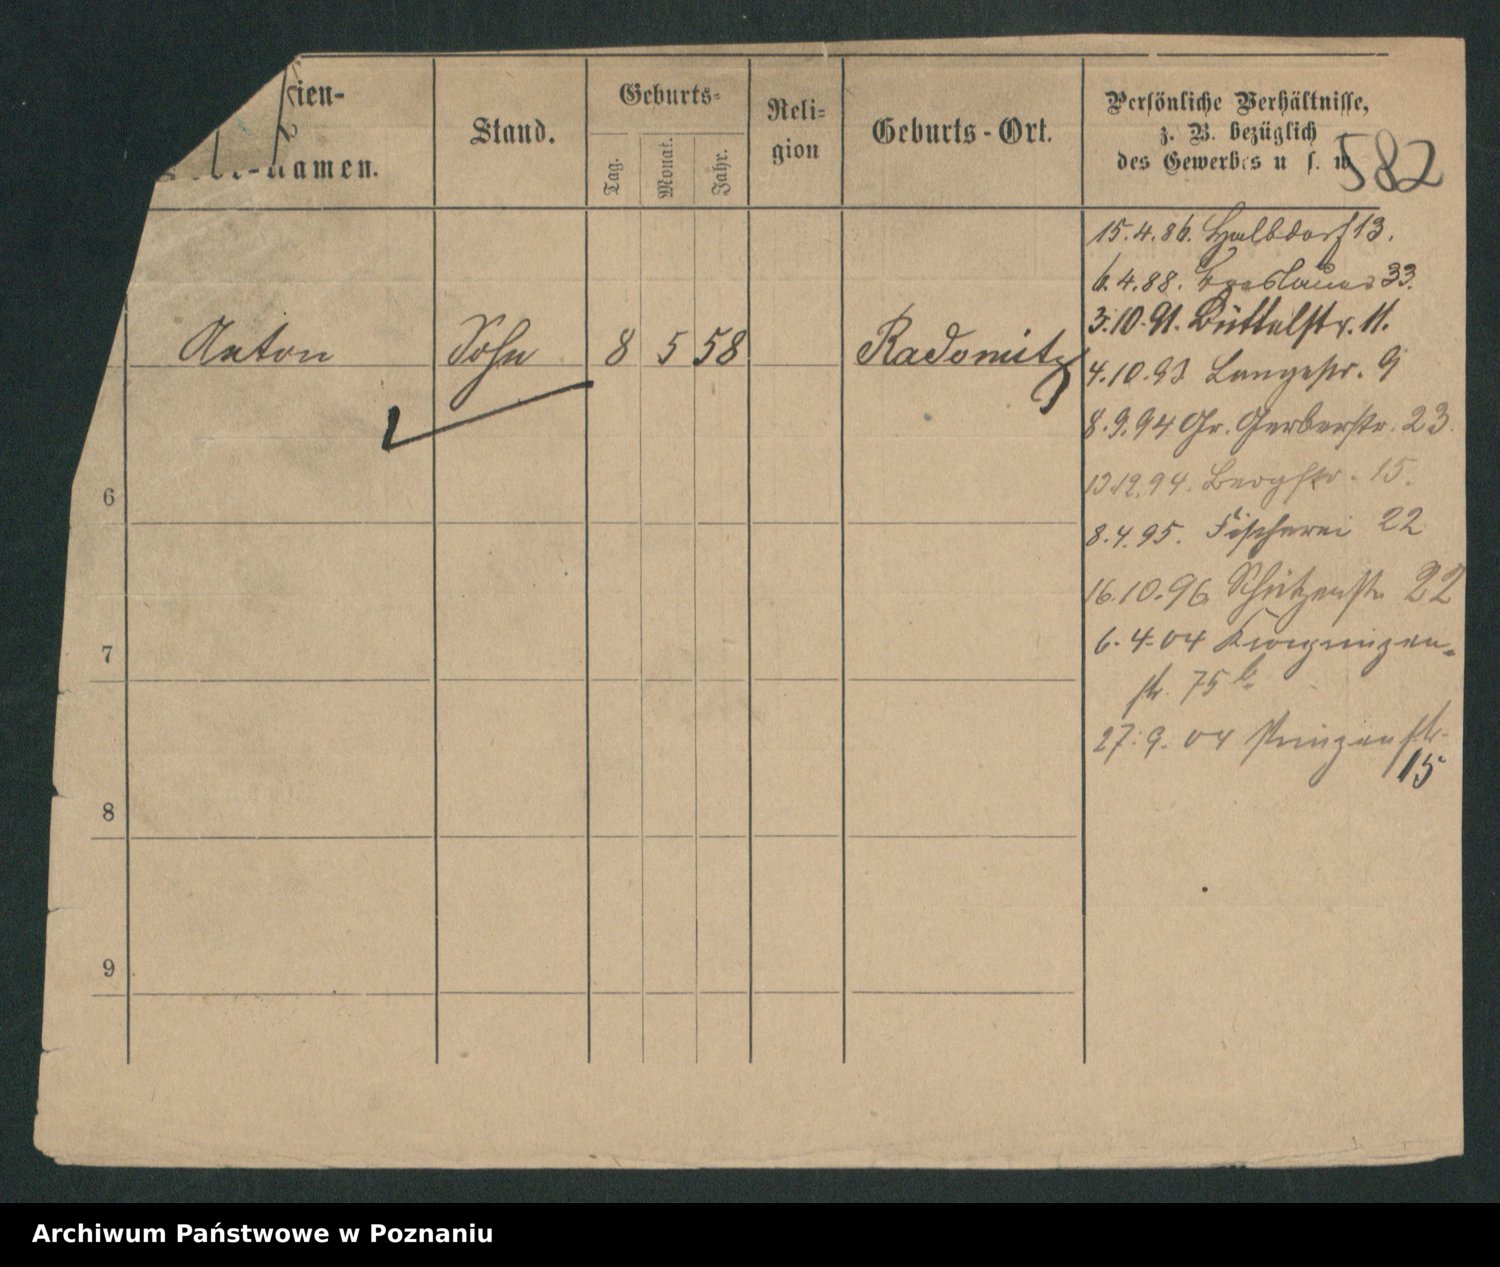 ien-
-namen.
Stand.
Geburts-
Tag.
Monat.
Jahr.
Reli-
gion
Geburts-Ort.
Persönliche Verhältnisse,
z. B. bezüglich
des Gewerbes u. s. w.
582
15.4.86. Halbdorf 13.
6.4.88. 33.
3.10.91. Büttelstr. 11.
Anton Sohn 8 5 58 Radomitz
4.10.93 Langestr. 9
8.9.94 Gr. Gerberstr. 23.
13.12.94. Bergstr. 15.
6
8.4.95. Fischerei 22
16.10.96 Schützenstr. 22
6.4.04 Kronprinzen-
7
str. 75 b
27.9.04 Prinzenstr.
15
8
9
Archiwum Państwowe w Poznaniu